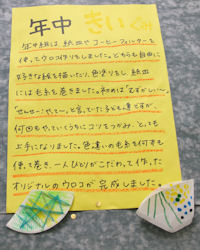 年中 きいぐみ
年中組は、紙皿やコーヒーフィルターを
使ってウロコ作りをしました。どちらも自由に
好きな絵を描いたり、色塗りをし、紙皿
には毛糸を巻きました。初めは「むずかしい〜」
「せんせ〜やって〜」と言っていた子ども達ですが、
何回もやっていくうちにコツをつかみ、とっても
上手になりました。色違いの毛糸を何本も
使って巻き、一人ひとりがこだわって作った
オリジナルのウロコが完成しました。